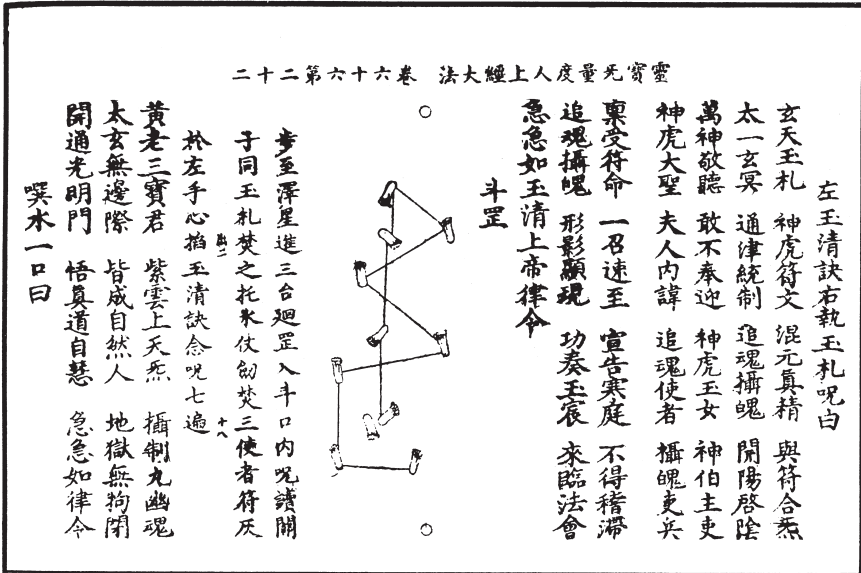 靈寶无量度人上經大法　卷六十六第二十二
左玉清訣右執玉札呪白
玄天玉札　神虎符文　混元真精　與符合炁
太一玄冥　通津統制　追魂攝魄　開陽啓陰
萬神敬聽　敢不奉迎　神虎玉女　神伯主吏
神虎大聖　夫人內諱　追魂使者　攝魄吏兵
稟受符命　一召速至　宣告寒庭　不得稽滯
追魂攝魄　形影顯現　功奏玉宸　來臨法會
急急如玉清上帝律令
斗罡
步至澤星進三台廻罡入斗口內呪讀開
子同玉札焚之托水仗劒焚三使者符灰
於左手心掐玉清訣念呪七遍
十八
黃老三寶君　紫雲上天炁　攝制九幽魂
太玄無邊際　皆成自然人　地獄無拘閉
開通光明門　悟真道自慧　急急如律令
噀水一口曰